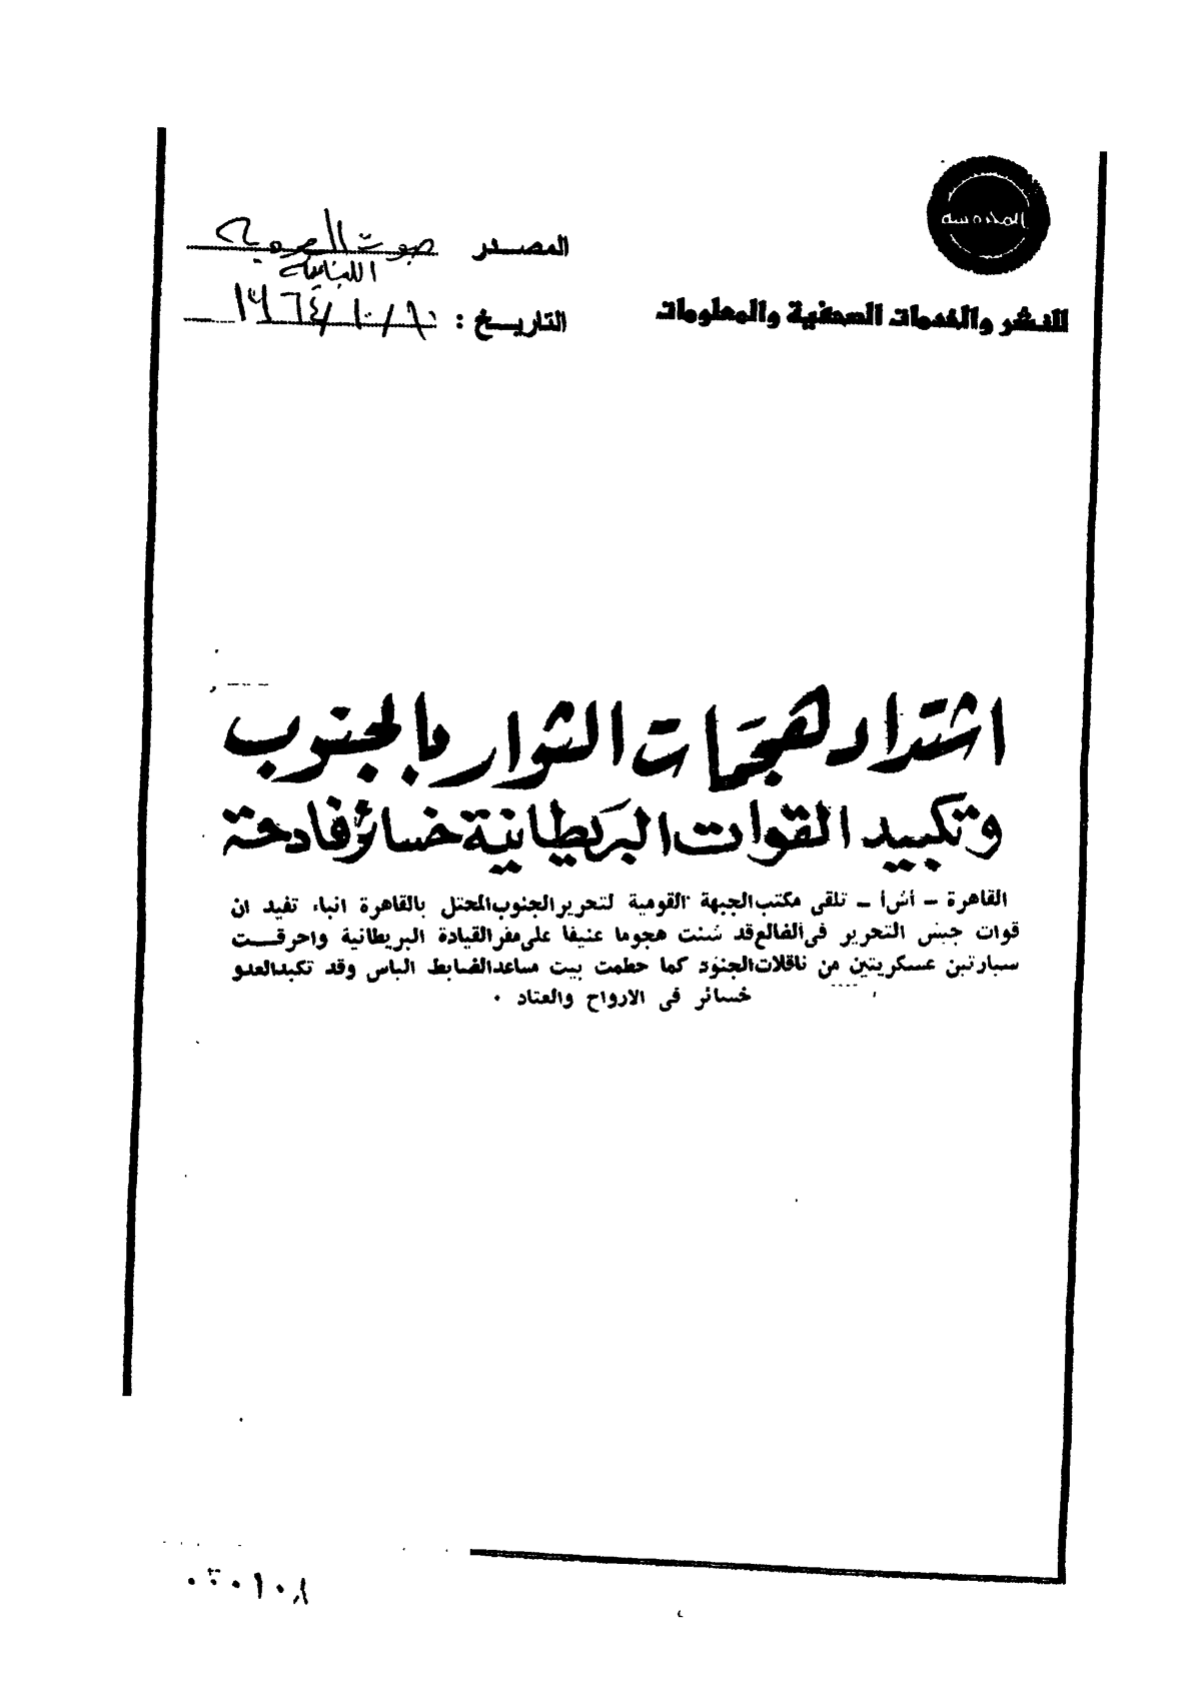 المصدر صوت العروبة
اللبنانية
التاريخ : ١٠/١٠/١٩٦٤
للنشر والخدمات الصحفية والمعلومات
اشتداد هجمات الثوار بالجنوب
وتكبيد القوات البريطانية خسائر فادحة
القاهرة – أ ش أ – تلقى مكتب الجبهة القومية لتحرير الجنوب المحتل بالقاهرة انباء تفيد ان
قوات جيش التحرير فى الضالع قد شنت هجوما عنيفا على مقر القيادة البريطانية واحرقت
سيارتين عسكريتين من ناقلات الجنود كما حطمت بيت مساعد الضابط الياس وقد تكبد العدو
خسائر فى الارواح والعتاد .